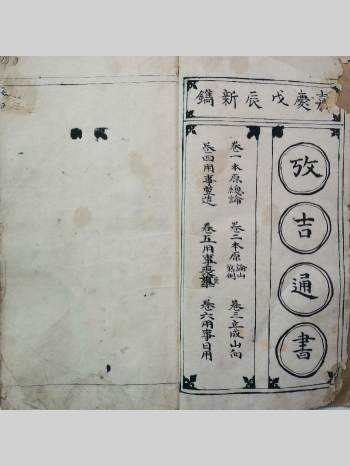 嘉慶戊辰新鐫
攷吉通書
卷一本原總論 卷二本原論山 卷三立成山向
卷四用事營造 卷五用事 卷六用事日用